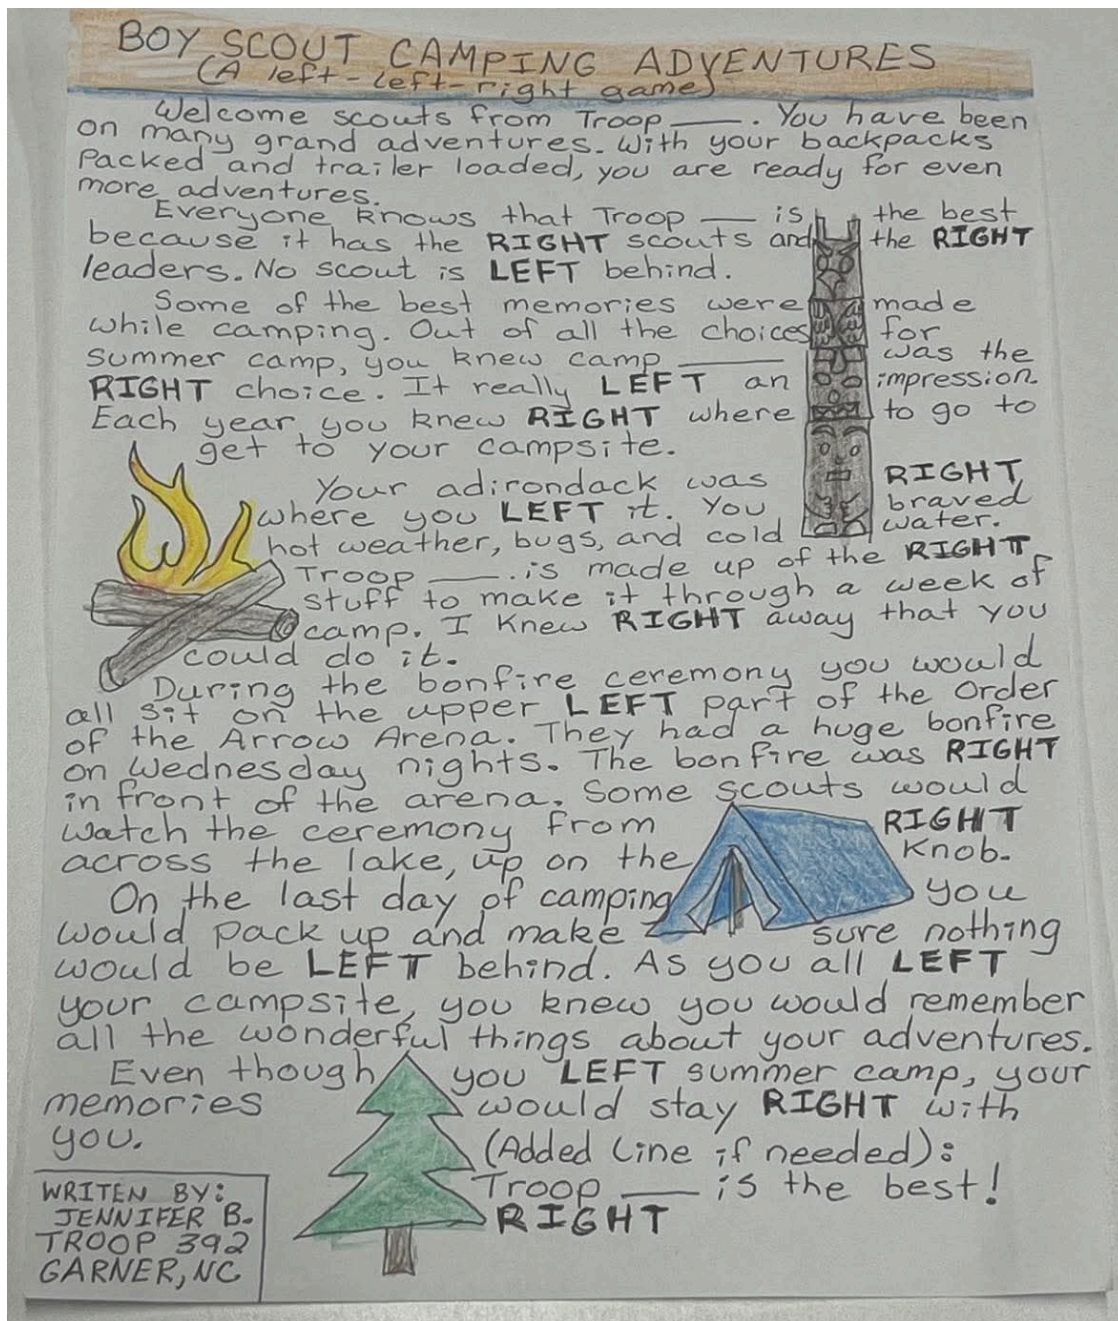 BOY SCOUT CAMPING ADVENTURES
(A left-left-right game)
Welcome scouts from Troop ____. You have been
on many grand adventures. With your backpacks
Packed and trailer loaded, you are ready for even
more adventures.
Everyone knows that Troop ____ is the best
because it has the RIGHT scouts and the RIGHT
leaders. No scout is LEFT behind.
Some of the best memories were made
while camping. Out of all the choices for
Summer camp, you knew camp ________ was the
RIGHT choice. It really LEFT an impression.
Each year you knew RIGHT where to go to
get to your campsite.
Your adirondack was RIGHT
where you LEFT it. You braved
hot weather, bugs, and cold water.
Troop ____. is made up of the RIGHT
stuff to make it through a week of
camp. I knew RIGHT away that you
could do it.
During the bonfire ceremony you would
all sit on the upper LEFT part of the Order
of the Arrow Arena. They had a huge bonfire
on Wednesday nights. The bonfire was RIGHT
in front of the arena. Some scouts would
watch the ceremony from RIGHT
across the lake, up on the Knob.
On the last day of camping you
would pack up and make sure nothing
would be LEFT behind. As you all LEFT
your campsite, you knew you would remember
all the wonderful things about your adventures.
Even though you LEFT summer camp, your
memories would stay RIGHT with
you.
(Added line if needed):
Troop ____ is the best!
RIGHT
WRITEN BY:
JENNIFER B.
TROOP 392
GARNER, NC